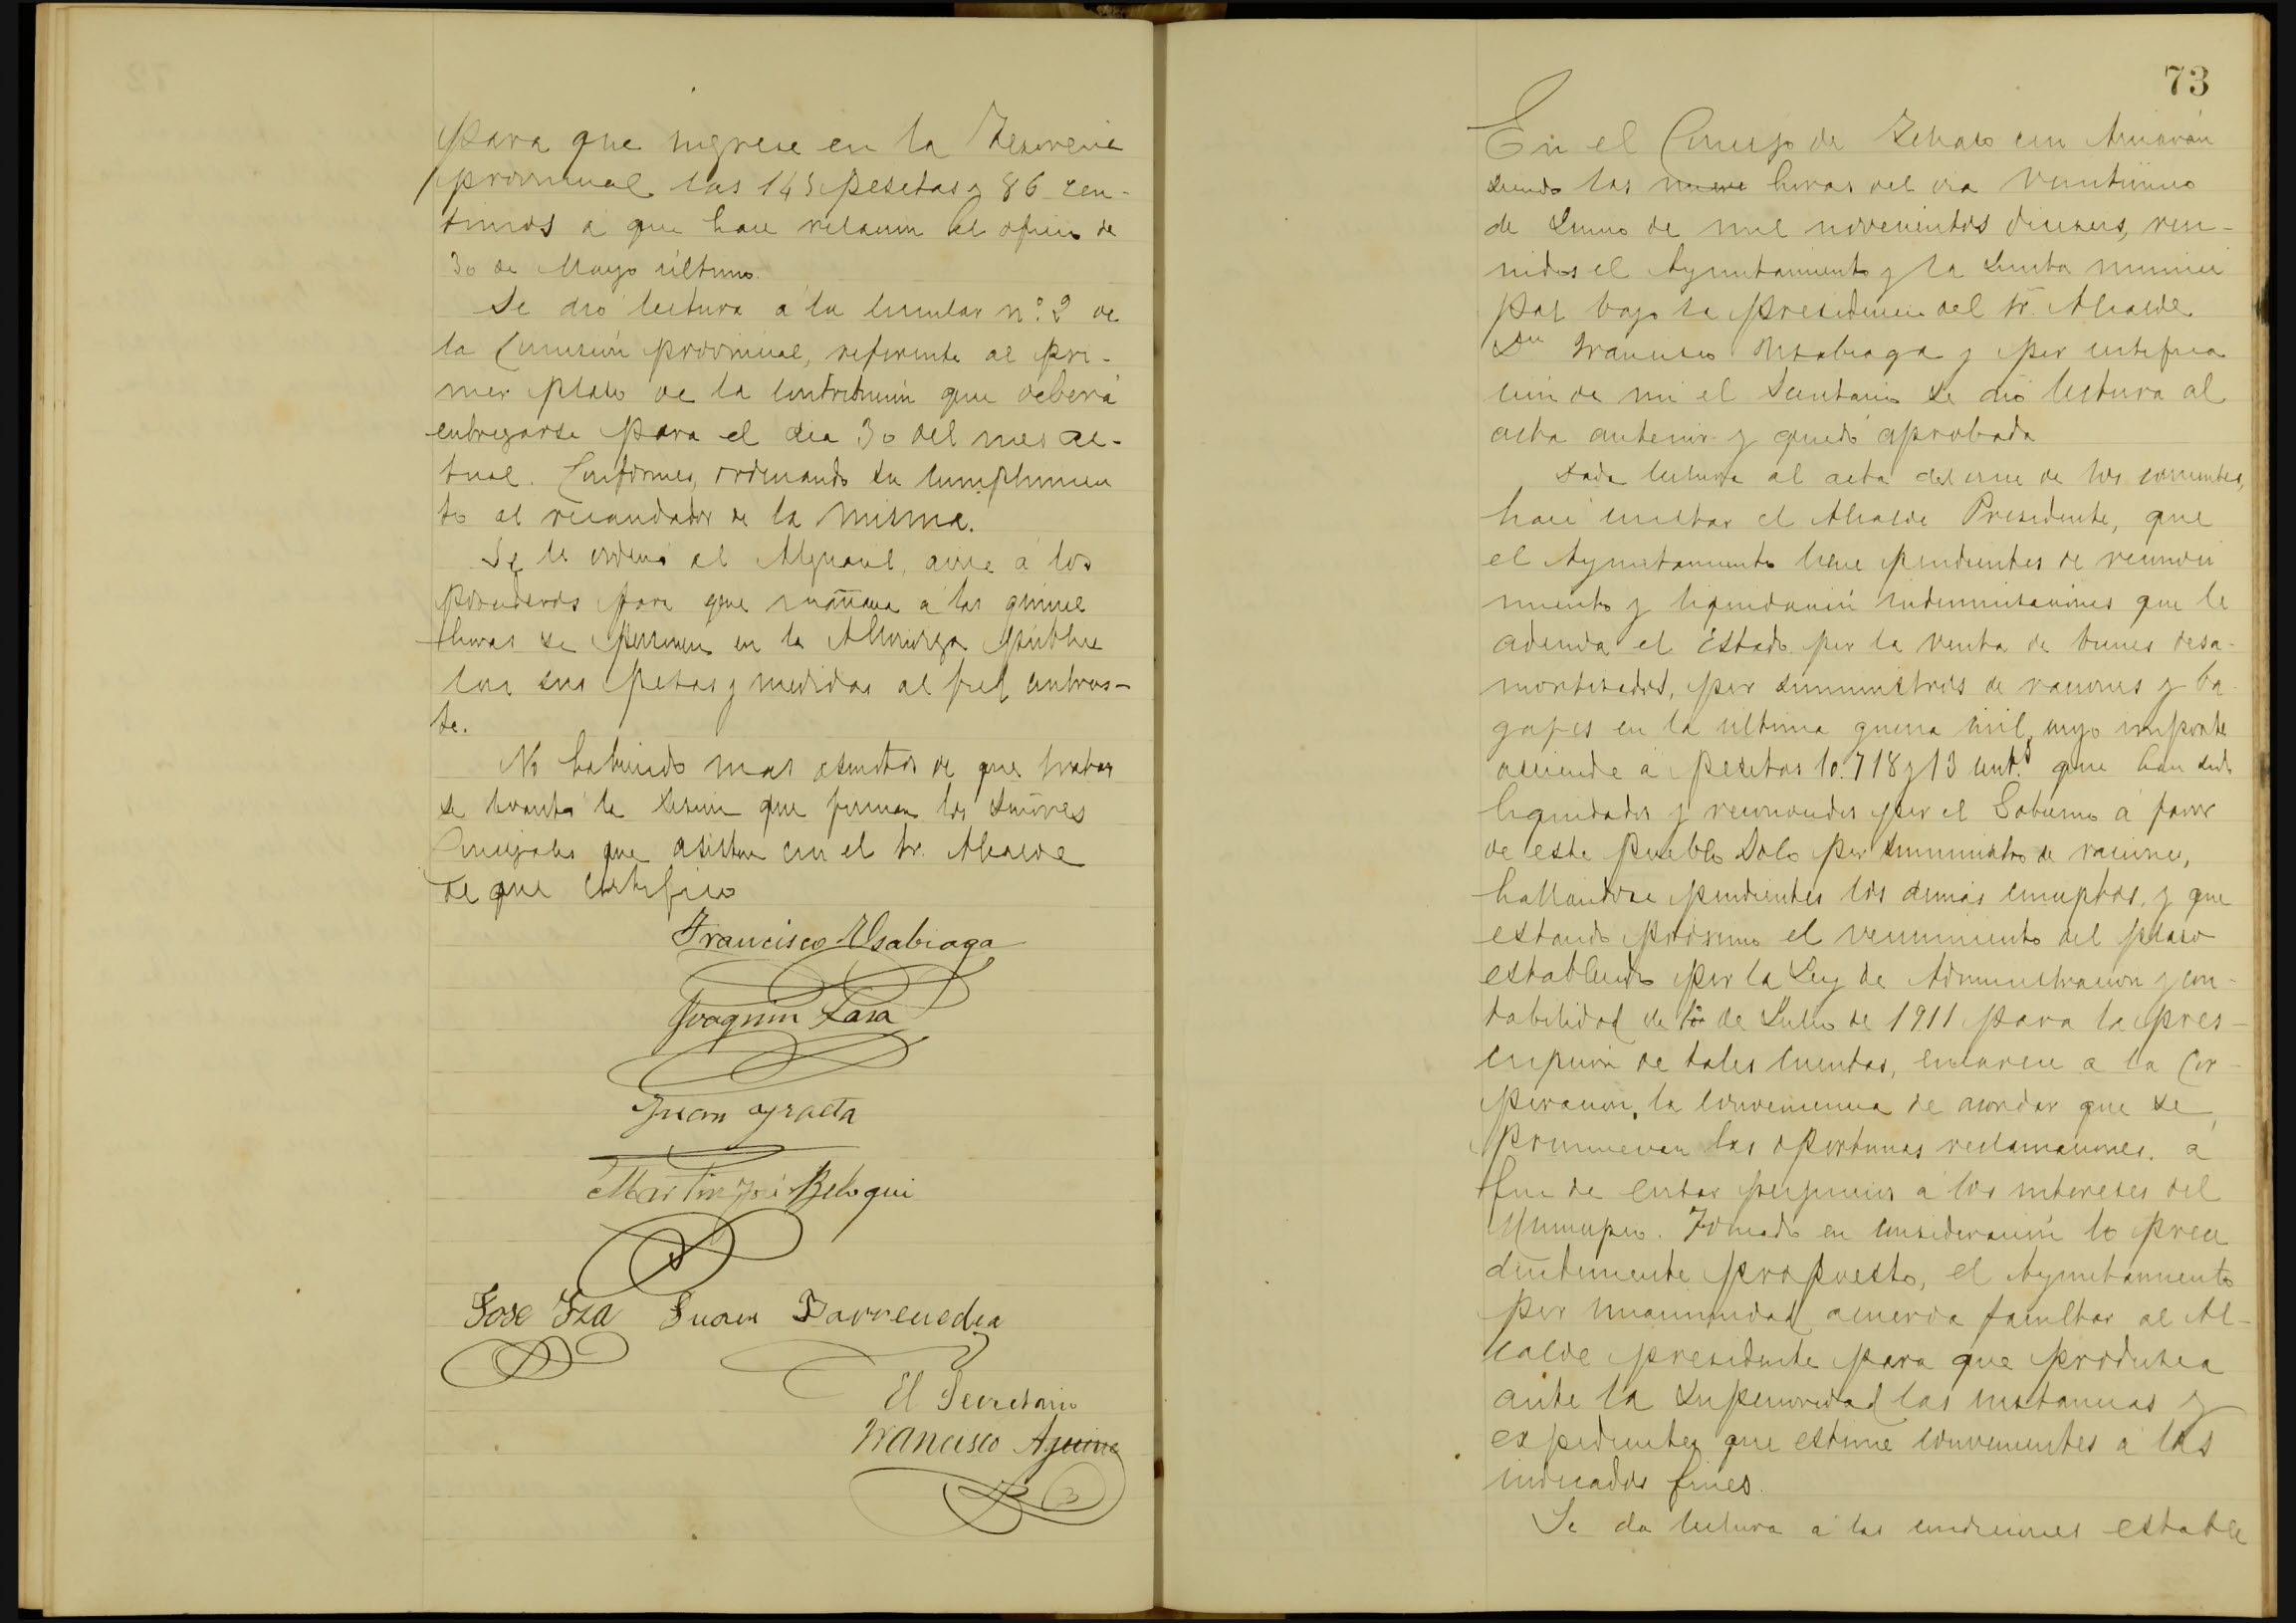 para que ingrese en la Tesoreria
provincial las 145 pesetas y 86 cen-
timos á que hace relacion el oficio de
30 de Mayo último.
Se dió lectura a la circular nº. 2 de
la Comisión provincial, referente al pri-
mer plazo de la contribución que deberá
entregarse para el dia 30 del mes ac-
tual. Conformes, ordenando su cumplimien
to al recaudador de la misma.
Se le ordenó al Alguacil, avise á los
para que mañana a las quince
horas se personen en la Alhóndiga pública
con sus pesas y medidas al fiel contras-
te.
No habiendo mas asuntos de que tratar
se levantó la sesion que firman los señores
Concejales que asisten con el Sr. Alcalde
de que certifico
Francisco Usabiaga
Joaquin Lasa
Juan
Martin José Beloqui
Jose Iza Juan Barrenechea
El Secretario
Francisco Aguirre
73
En el Concejo de
siendo las nueve horas del dia veintiuno
de Junio de mil novecientos dieciseis, reu-
nidos el Ayuntamiento y la Junta munici
pal bajo la presidencia del Sr. Alcalde
Dn Francisco Usabiaga y por certifica
cion de mi el Secretario se dió lectura al
acta anterior y quedó aprobada
Dada lectura al acta del once de los corrientes,
hace constar el Alcalde Presidente, que
el Ayuntamiento tiene pendientes de reconoci
miento y liquidación indemnizaciones que le
adeuda el Estado por la venta de bienes desa-
mortizados, por suministros de raciones y ba-
gajes en la última guerra civil, cuyo importe
asciende á pesetas 10.718 y 13 cents. que han sido
liquidados y reconocidos por el Gobierno á favor
de este pueblo solo por suministro de raciones,
hallandose pendientes los demás conceptos, y que
estando próximo el vencimiento del plazo
establecido por la Ley de Administracion y con-
tabilidad de 1º de Julio de 1911 para la pres-
cripción de tales cuentas, encarece a la Cor-
poracion, la conveniencia de acordar que se
promuevan las oportunas reclamaciones, á
fin de evitar perjuicios á los intereses del
Municipio. Tomado en consideración lo prece
dentemente propuesto, el Ayuntamiento
por unanimidad acuerda facultar al Al-
calde presidente para que produzca
ante la Superioridad las instancias y
expedientes que estime convenientes á los
indicados fines.
Se da lectura a las condiciones estable